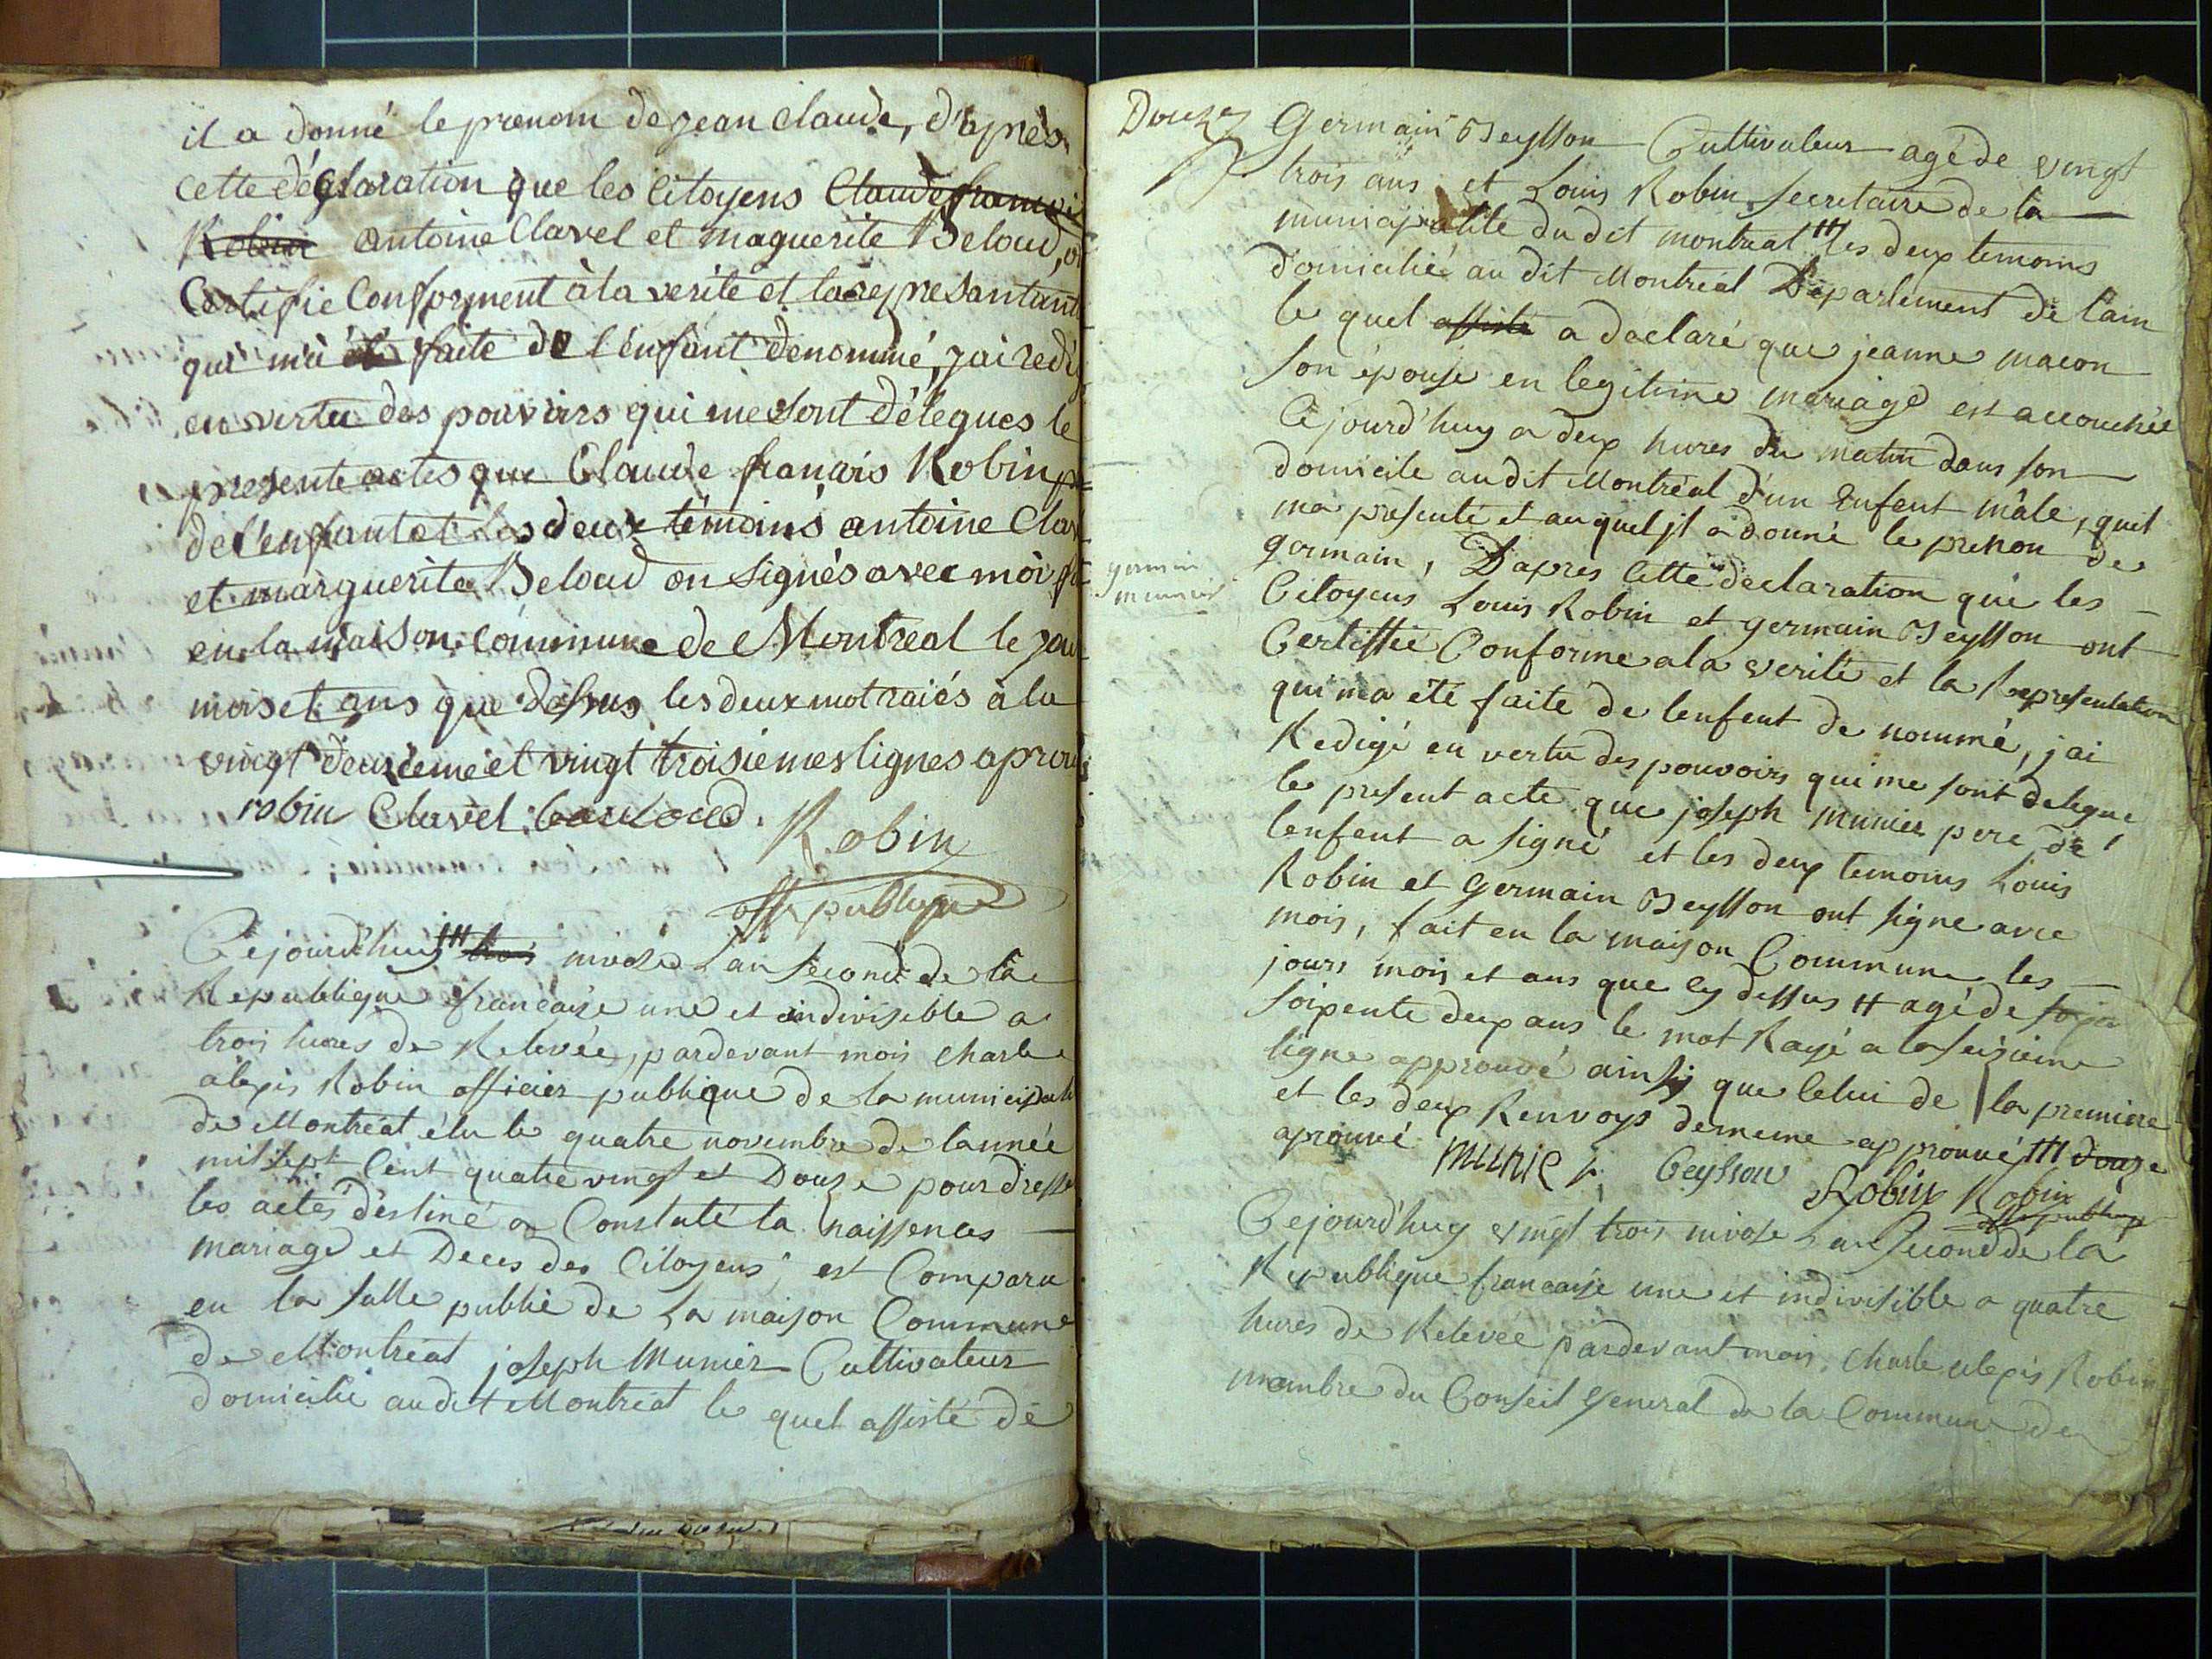 il a donné le prenom de jean claude, d'après
cette déclaration que les Citoyens Claude françois
Robin antoine Clavel et maguerite Beloud, on
Certifie Conforment à la verité et la represantant
qui m'a été faite de l'énfant dénommé, j'ai redi
en vertu des pouvoirs qui me sont délegues le
presente actes que Claude françois Robin p
de l'enfant et les deux témoins antoine Clav
et marguerite Beloud on signés avec moi f
en la maison commune de Montreal le jou
mois et ans que dessus les deux mot raiés à la
vingt deuxieme et vingt troisiemes lignes aprouv
robin Clavel bouloud. Robin
off publique
Cejourd'huy ttt trois nivose Lan second de la
Republique francaise une et indivisible a
trois hures de Relevée, pardevant mois Charle
alexis Robin officier publique de la municipali
de Montréal élu le quatre novembre de lannée
mil sept Cent quatre vingt et Douze pour dresse
les actes destiné a Constaté la naissences
mariage et Deces des Citoyens, est Comparu
en la salle publié de La maison Commune
de Montréal joseph Munier Cultivateur
domicilié audit Montréal le quel assisté de
Douze Germain Beysson Cultivateur agé de vingt
trois ans et Louis Robin secretaire de la
municipalité du dit montreal tt les deux temoins
domicilié au dit Montréal Département de lain
le quel assisté a declaré que jeanne macon
son épouse en legitime mariage est accouchée
Cejourd'huy a deux hures du matin dans son
domicile audit Montréal d'un Enfent mâle, quil
ma presenté et au quel jl a donné le prenon de
germain, D'apres Cette declaration que les
germain
munier
Citoyens Louis Robin et germain Beysson ont
Certiffié Conforme a la verité et la Representation
qui m'a été faite de lenfent de nommé, j'ai
Redigé en vertu des pouvoirs qui me sont delegue
le present acte que joseph munier pere de
lenfent a signé et les deux temoins Louis
Robin et Germain Beysson ont signe avec
mois, fait en la maison Commune les
jours mois et ans que cy dessus tt agé de
soixente deux ans le mot Rayé a la seizieme
ligne approuvé ainsy que Celui de la premiere
et les deux Renvoys demême approuvé ttt douze
aprouvé munier Beysson Robin Robin
off publique
Cejourd'huy vingt trois nivose Lan second de la
Republique francaise une et indivisible a quatre
hures de Relevée pardevant mois, Charle alexis Robin
membre du Conseil general de la Commune de